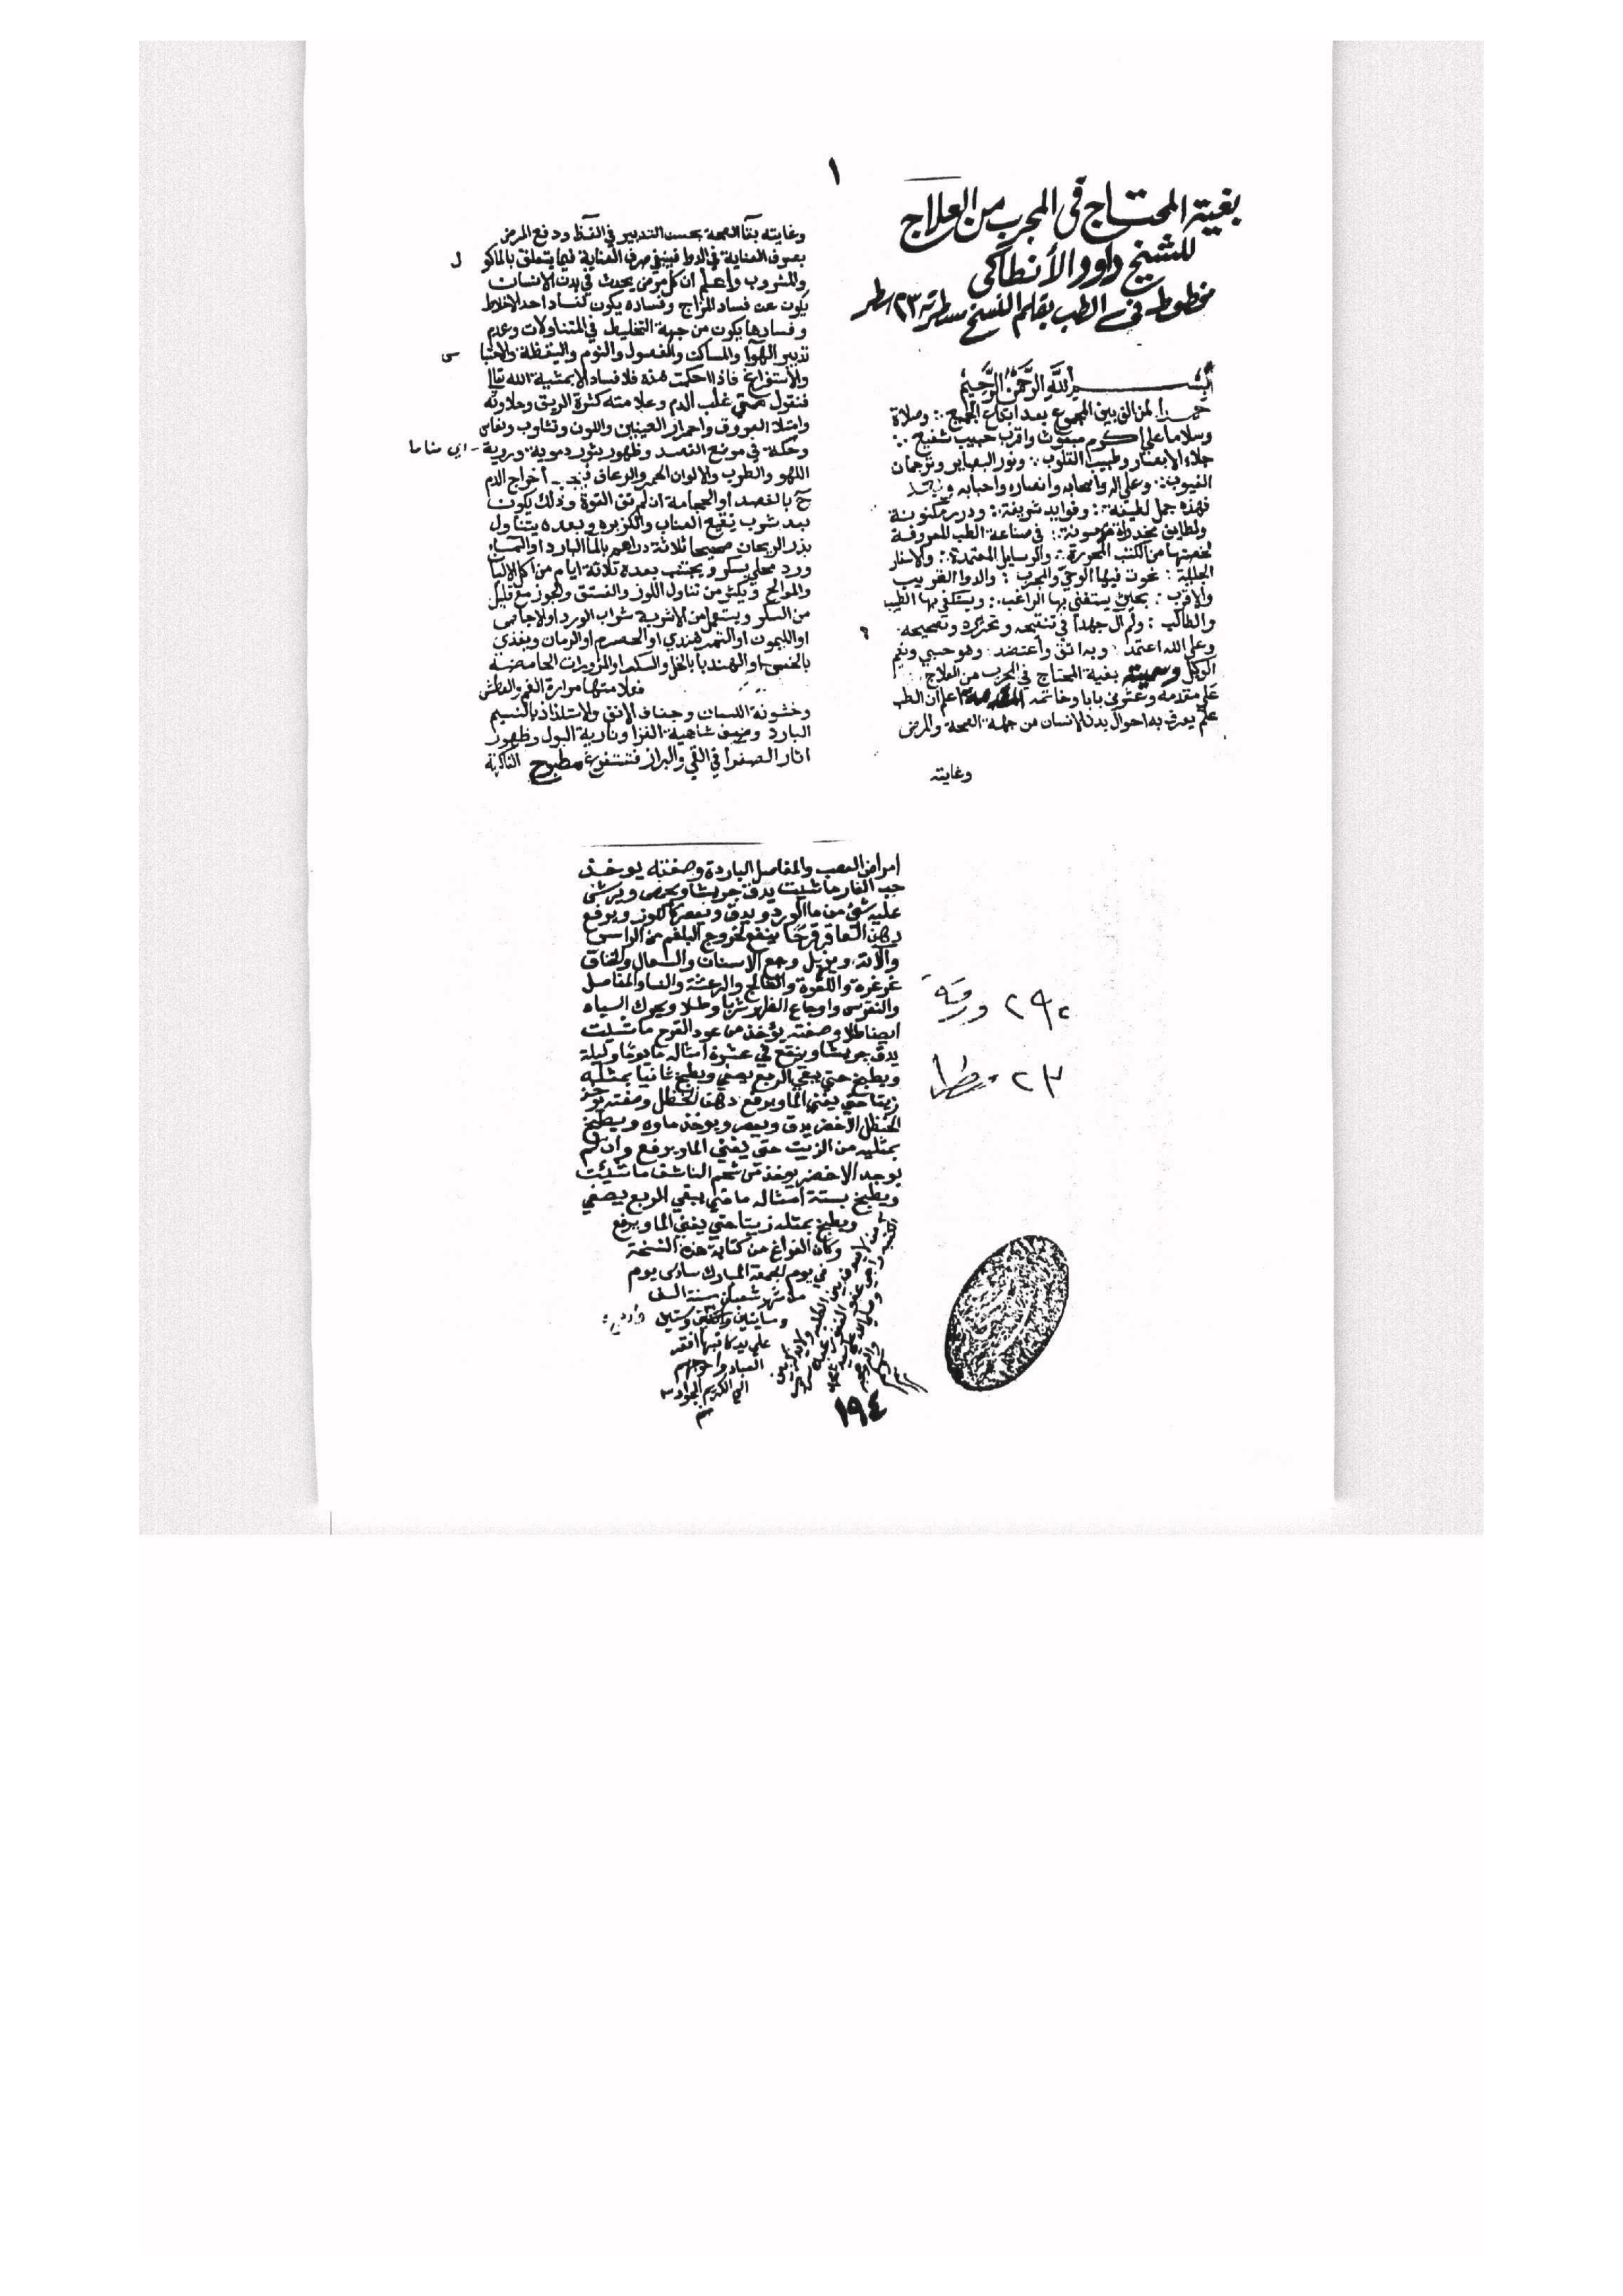 ١
بغية المحتاج في المجرب من العلاج
للشيخ داود الأنطاكي
مخطوط في الطب بقلم النسخ مسطرته ٢٣ سطر
بسم الله الرحمن الرحيم
حمدا لمن الف بين المجموع بعد ابداع الجميع ∴ وصلاة
وسلاما على اكرم مبعوث واقرب حبيب شفيع ∴
جلاء الابصار وطبيب القلوب ∴ ونور البصاير وترجمان
الغيوب ∴ وعلى اله واصحابه وانصاره واحبابه وبعد
فهذه جمل لطيفة ∴ وفوايد شريفة ∴ ودرر مكنونة
ولطايف مخدراة مصونة ∴ في صناعة الطب المعروفة
لخصتها من الكتب المحررة ∴ والرسايل المعتمدة ∴ والاسفار
الجليلة : نحوت فيها الوحي والمجرب : والدوا الغريب
والاقرب : بحيث يستغني بها الراغب ∴ ويكتفي بها الطبيب
والطالب : ولم آل جهدا في تنقيحه وتحرره وتصحيحه
وعلى الله اعتمد : وبه اثق واعتضد : وهو حسبي ونعم
الوكيل وسميته بغية المحتاج في المجرب من العلاج
على مقدمة وعشرين بابا وخاتمه المقدمه اعلم ان الطب
علم يعرف به احوال بدن الانسان من جهة الصحة والمرض
وغايته
وغايته بقآ الصحة بحسن التدبير في الحفظ ودفع المرض
بصرف العناية في الدوا فينبغي صرف العناية فيما يتعلق بالماكول
والمشروب واعلم ان كل مرض يحدث في بدن الانسان
يكون عن فساد المزاج وفساده يكون لفساد احد الاخلاط
وفسادها يكون من جهة التخليط في المتناولات وعدم
تدبير الهوآ والمساكن والفصول والنوم واليقظة والاحتباس
والاستفراغ فاذا احكمت هذه فلا فساد الا بمشية الله تعالى
فنقول متى غلب الدم وعلامته كثرة الريق وحلاوته
وامتلآ العروق واحمرار العينين واللون وتثاوب ونعاس
وحكة في موضع الفصد وظهور بثور دموية ورويـة اي مناما
اللهو والطرب والالوان الحمر والرعاف فيجب اخراج الدم
ح بالفصد او الحجامة ان لم تق القوة وذلك يكون
بعد شرب نقيع العناب والكزبره وبعده يتناول
بذر الريحان صحيحا ثلاثة دراهم بالمآ البارد او
ورد محلى بسكر ويجتنب بعده ثلاثة ايام من اكل الالبان
والموالح ويكثر من تناول اللوز والفستق والجوز مع قليل
من السكر ويستعمل من الاشربة شراب الورد او الاجاص
او الليمون او التمر هندي او الحصرم او الرمان ويغذي
بالخس او الهندبا بالخل والسكر او المزورات الحامضـة
فعلامتها مرارة الفم والعطش
وخشونة اللسان وجفاف الانف والاستلذاذ بالنسيم
البارد وضعف شاهية الغذا ونارية البول وظهور
اثار الصفرا في القي والبراز فتستفرغ مطبوخ الفاكهة
امراض العصب والمفاصل الباردة وصفته يوخذ
حب الغار ما شيت يدق جريشا ويحمص ويرش
عليه شئ من ما الورد ويدق ويعصر كاللوز ويرفع
دهن العاقرقرحا ينفع لخروج البلغم من الراس
والاته ويزيل وجع الاسنان والسعال والخناق
غرغرة واللقوة والفالج والرعشة والنسا والمفاصل
والنقرس واوجاع الظهر شربا وطلا ويحرك الباه
ايضا طلا وصفته يؤخذ من عود القرح ما شيت
يدق جريشا وينقع في عشرة امثاله ما يوما وليلة
ويطبخ حتى يبقى الربع يصفي ويطبخ ثانيا بمثله
زيتا حتى يفني المآ ويرفع دهن الحنظل وصفته يوخذ
الحنظل الاخضر يدق ويعصر ويوخذ ماوه ويطبخ
بمثليه من الزيت حتى يفني الما ويرفع وان لم
يوجد الاخضر يوخذ من شحم الناشف ما شيئت
ويطبخ بستة امثاله ما حتى يبقى الربع يصفي
ويطبخ بمثله زيتا حتى يفني الما ويرفع
وكان الفراغ من كتابة هذه النسخة
في يوم الجمعة المبارك سادس يوم
من شهر شعبان سنة الف
ومايتين وستين
على يد كاتبها افقر
العباد واحوجهم
الى الكريم الجواد
١٩٤
٢٩٠ ورقة
٢٣ سطرا